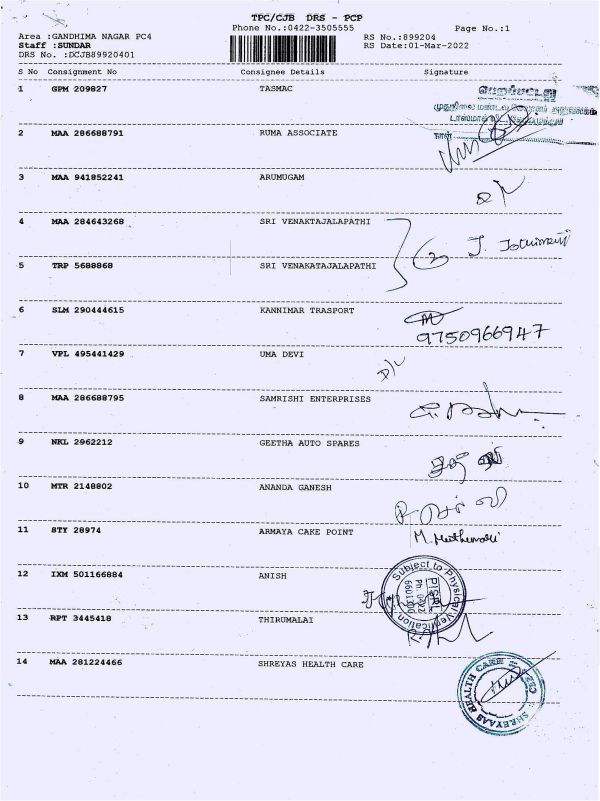 TPC/CJB DRS - PCP
Phone No.:0422-3505555
Page No.:1
Area :GANDHIMA NAGAR PC4
RS No.:899204
Staff :SUNDAR
RS Date:01-Mar-2022
DRS No. :DCJB89920401
S No Consignment No Consignee Details Signature
1 GPM 209827 TASMAC
பெறப்பட்டது
2 MAA 286688791 RUMA ASSOCIATE
நாள்
3 MAA 941852241 ARUMUGAM
4 MAA 284643268 SRI VENAKTAJALAPATHI
5 TRP 5688868 SRI VENAKATAJALAPATHI
2
6 SLM 290444615 KANNIMAR TRASPORT
9750966947
7 VPL 495441429 UMA DEVI
8 MAA 286688795 SAMRISHI ENTERPRISES
9 NKL 2962212 GEETHA AUTO SPARES
10 MTR 2148802 ANANDA GANESH
11 STY 28974 ARMAYA CAKE POINT
12 IXM 501166884 ANISH
Subject to Physical Verification
13 RPT 3445418 THIRUMALAI
14 MAA 281224466 SHREYAS HEALTH CARE
SHREYAAS HEALTH CARE